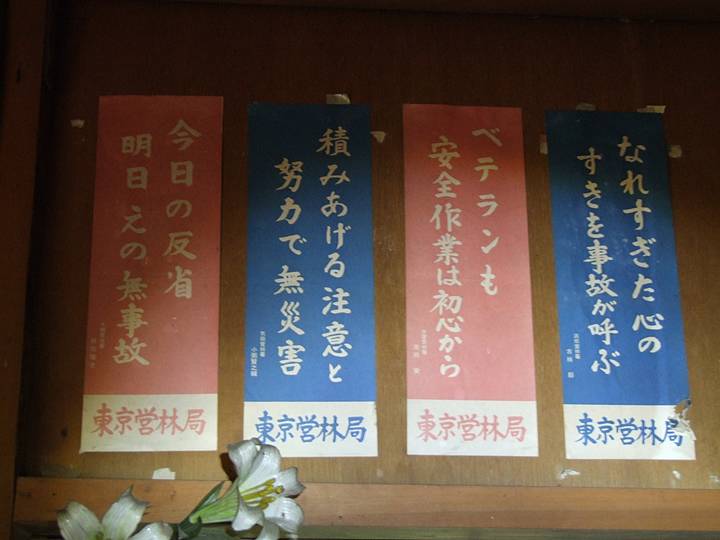 なれすぎた心の
すきを事故が呼ぶ
東京営林局
ベテランも
安全作業は初心から
東京営林局
積みあげる注意と
努力で無災害
東京営林局
今日の反省
明日えの無事故
東京営林局